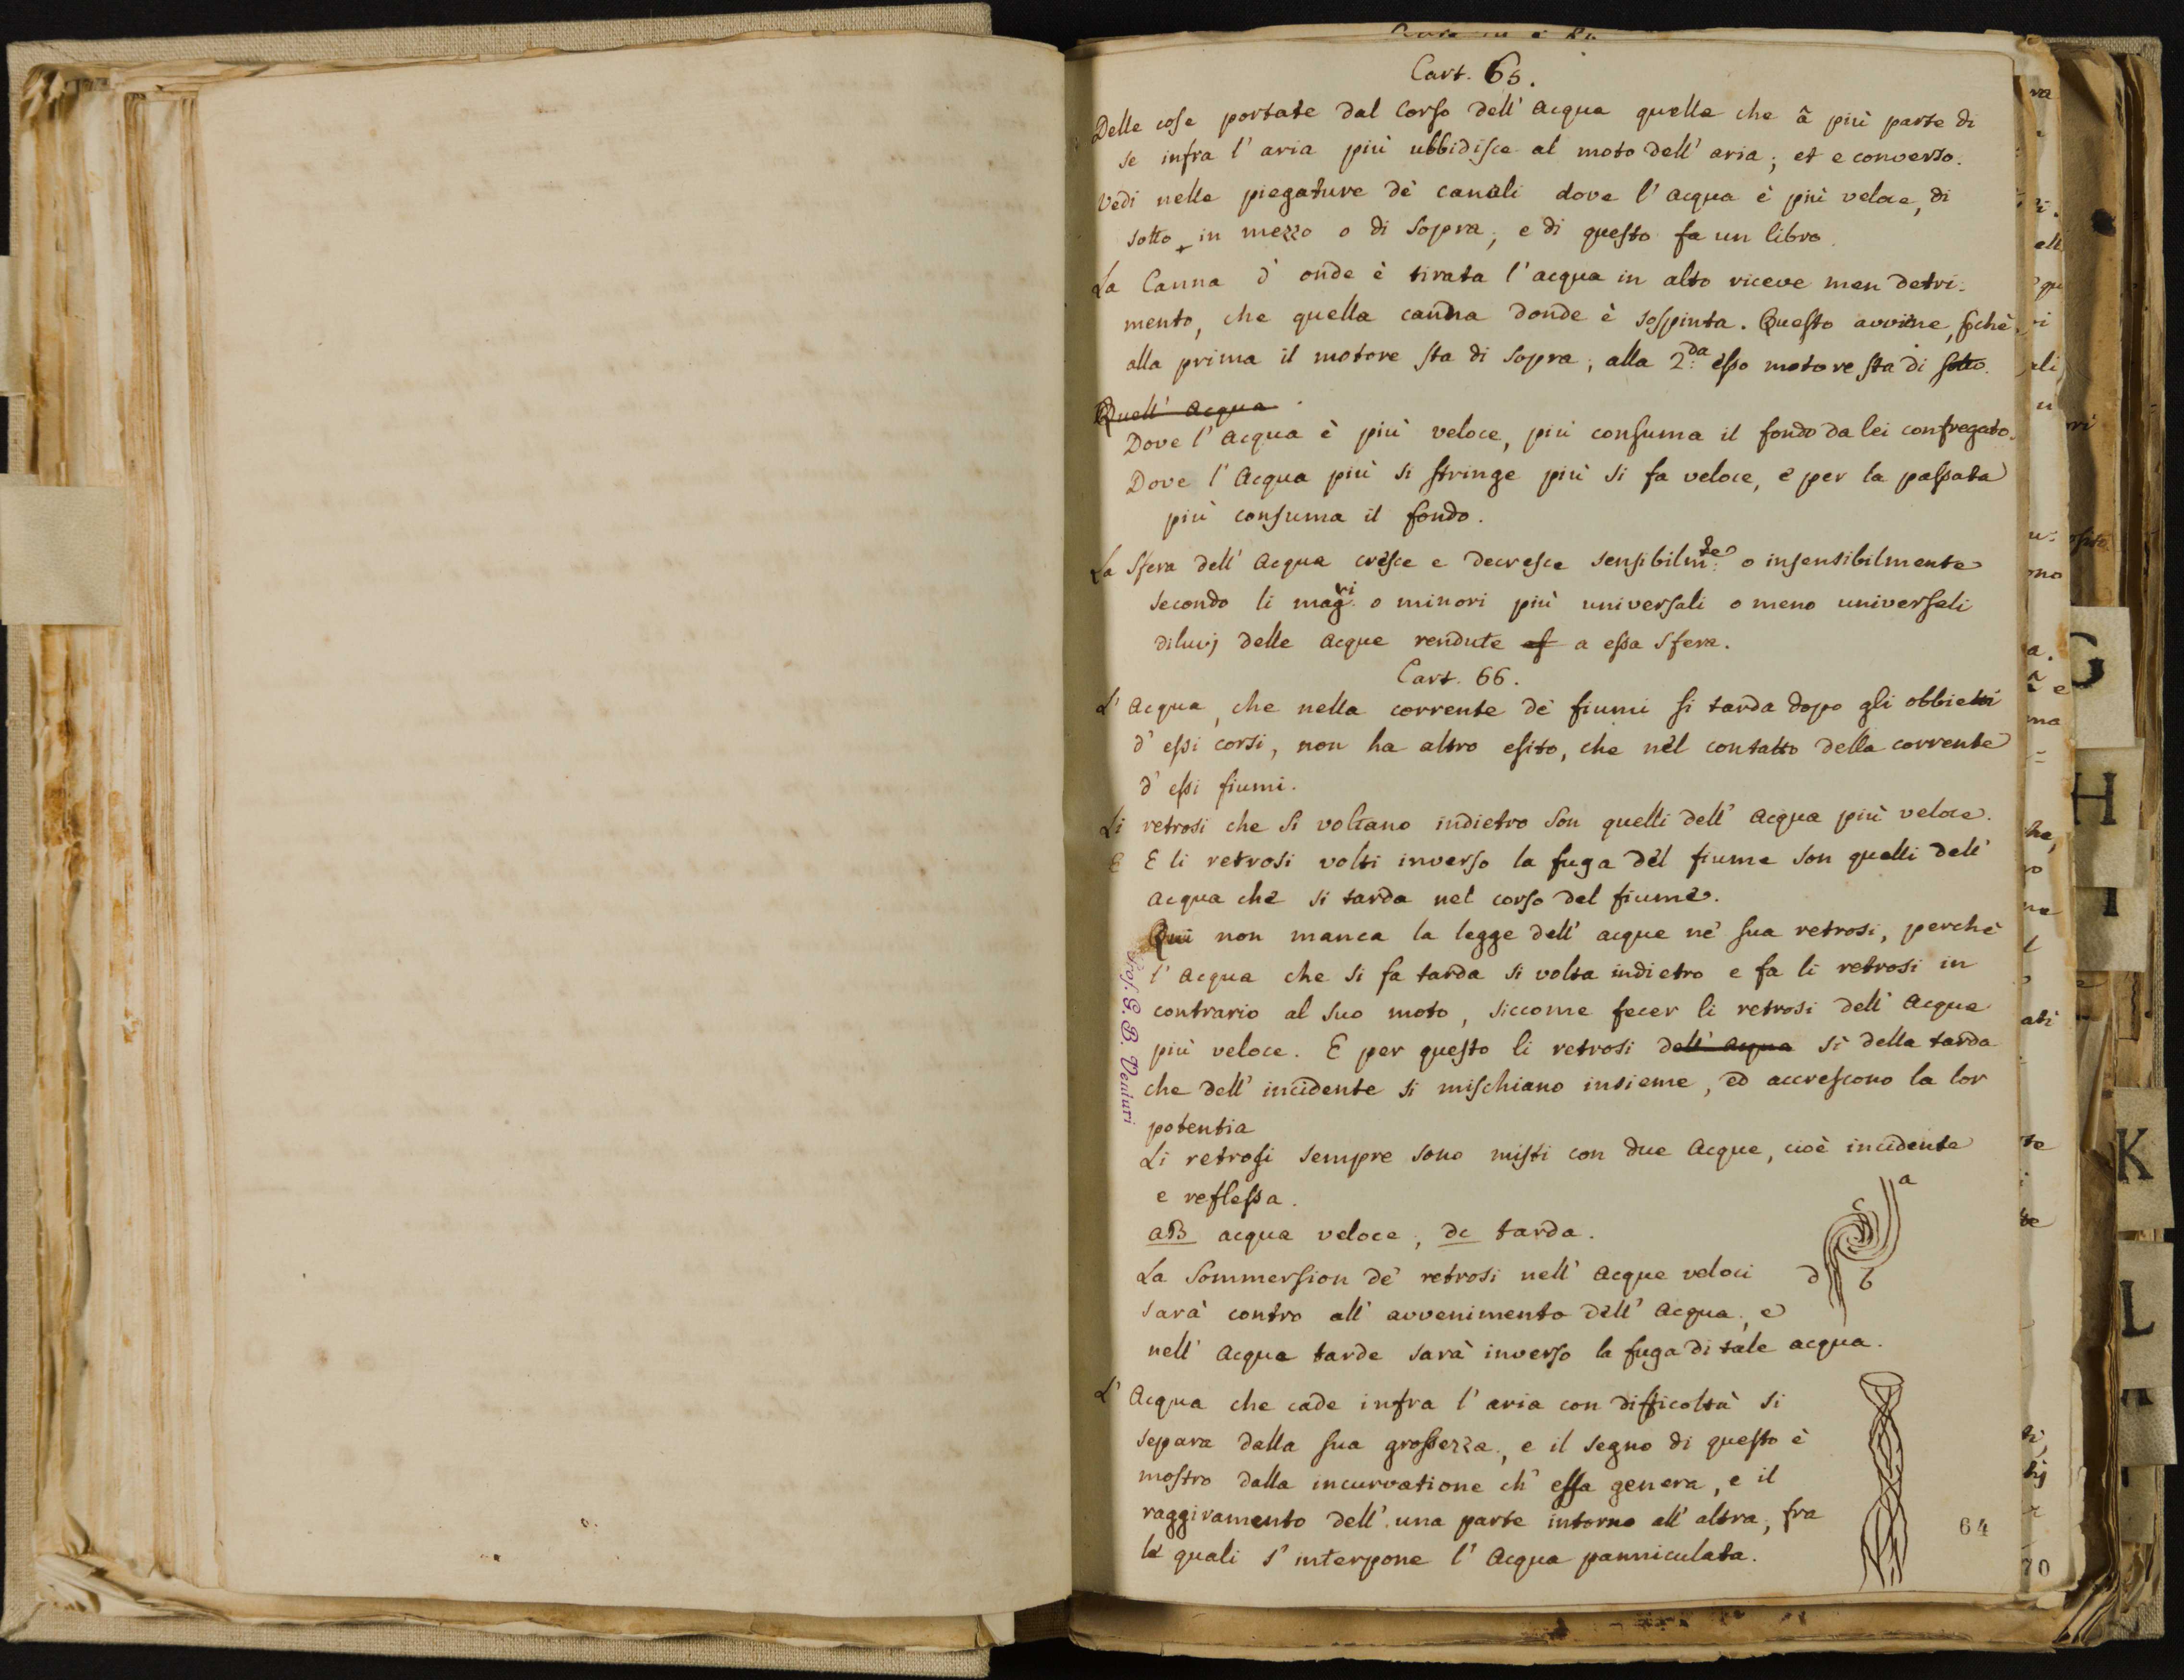 Cart. 65.
Delle cose portate dal Corso dell' Acqua quella che â più parte di
se infra l' aria più ubbidisce al moto dell' aria; et e converso.
Vedi nelle piegature de' canali dove l' Acqua è più veloce, di
sotto in mezzo o di Sopra; e di questo fa un libro.
La Canna d' onde è tirata l' acqua in alto riceve men detri-
mento, che quella canna donde è sospinta. Questo avvine, pchè
alla prima il motore sta di Sopra; alla 2.da esso motore sta di sotto.
Quell' Acqua
Dove l' Acqua è più veloce, più consuma il fondo da lei confregato.
Dove l' Acqua più si stringe più si fa veloce, e per la passata
più consuma il fondo.
La Sfera dell' Acqua cresce e decresce sensibilm:te o insensibilmente
secondo li mag.ri o minori più universali o meno universali
diluvj delle Acque rendute a essa Sfera.
Cart. 66.
L' Acqua, che nella corrente de' fiumi si tarda dopo gli obbietti
d' essi corsi, non ha altro esito, che nel contatto della corrente
d' essi fiumi.
Li retrosi che si voltano indietro Son quelli dell' Acqua più veloce.
E E li retrosi volti inverso la fuga del fiume son quelli dell'
Acqua che si tarda nel corso del fiume.
Qui non manca la legge dell' acque ne' sua retrosi, perchè
l' Acqua che si fa tarda si volta indietro e fa li retrosi in
contrario al suo moto, siccome fecer li retrosi dell' Acqua
più veloce. E per questo li retrosi dell' Acqua sì della tarda
che dell' incidente si mischiano insieme, ed accrescono la lor
potentia
Li retrosi sempre sono misti con due Acque, cioè incidente
e reflessa.
aB acqua veloce; dc tarda.
La Sommersion de' retrosi nell' Acque veloci
sarà contro all' avvenimento dell' Acqua; e
nell' Acque tarde sarà inverso la fuga di tale acqua.
a
c
d b
L' Acqua che cade infra l' aria con difficoltà si
separa dalla sua grossezza; e il segno di questo è
mostro dalla incurvatione ch' essa genera, e il
raggiramento dell' una parte intorno all' altra; fra
le quali s' interpone l' Acqua panniculata.
64
Prof. G. B. Venturi
70
G
H
I
K
L